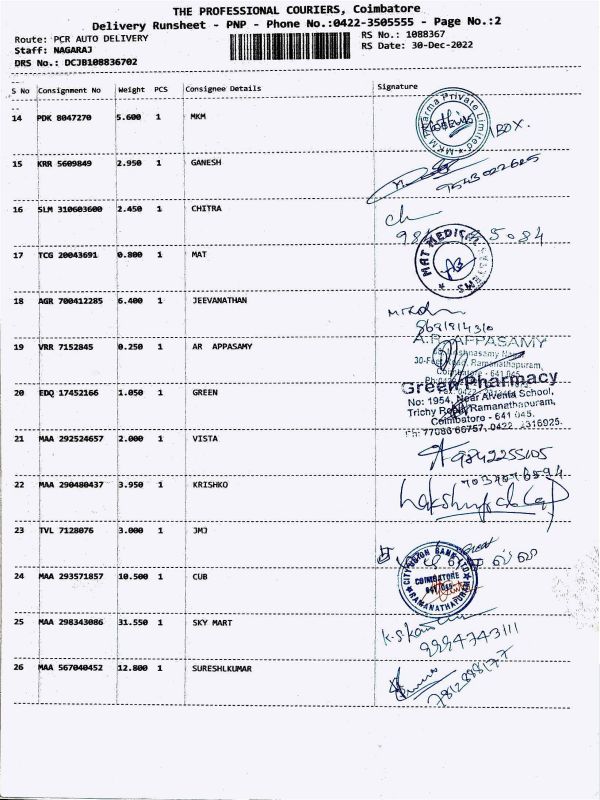 THE PROFESSIONAL COURIERS, Coimbatore
Delivery Runsheet - PNP - Phone No.:0422-3505555 - Page No.:2
Route: PCR AUTO DELIVERY
RS No.: 1088367
Staff: NAGARAJ
RS Date: 30-Dec-2022
DRS No.: DCJB108836702
S No Consignment No Weight PCS Consignee Details Signature
14 PDK 8047270 5.600 1 MKM
MKM Pharma Private Limited
1 BOX.
15 KRR 5609849 2.950 1 GANESH
16 SLM 310603600 2.450 1 CHITRA
ch
17 TCG 20043691 0.800 1 MAT
MAT MEDICAL
18 AGR 700412285 6.400 1 JEEVANATHAN
19 VRR 7152845 0.250 1 AR APPASAMY
A.R. APPASAMY
Ramanathapuram,
Coimbatore - 641 045
20 EDQ 17452166 1.050 1 GREEN
Green Pharmacy
No: 1954, Near Alvernia School,
Trichy Road, Ramanathapuram,
Coimbatore - 641 045.
Ph: 77086 66757, 0422
21 MAA 292524657 2.000 1 VISTA
22 MAA 290480437 3.950 1 KRISHKO
23 TVL 7128076 3.000 1 JMJ
24 MAA 293571857 10.500 1 CUB
CITY UNION BANK LTD
COIMBATORE
641 045
RAMANATHAPURAM
25 MAA 298343086 31.550 1 SKY MART
9994743111
26 MAA 567040452 12.800 1 SURESHLKUMAR